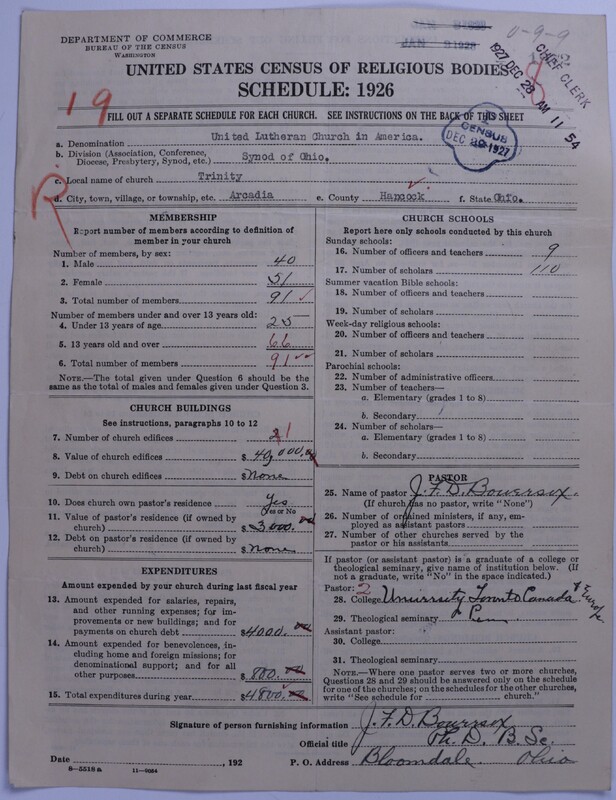 DEPARTMENT OF COMMERCE
BUREAU OF THE CENSUS
WASHINGTON
JAN 31 1928
U-9-9
1927 DEC 28 AM 11 54
CHIEF CLERK
UNITED STATES CENSUS OF RELIGIOUS BODIES
SCHEDULE: 1926
19
FILL OUT A SEPARATE SCHEDULE FOR EACH CHURCH. SEE INSTRUCTIONS ON THE BACK OF THIS SHEET
CENSUS
DEC 29 1927
a. Denomination United Lutheran Church in America.
b. Division (Association, Conference, Diocese, Presbytery, Synod, etc.) Synod of Ohio.
c. Local name of church Trinity
d. City, town, village, or township, etc. Arcadia e. County Hancock f. State Ohio.
MEMBERSHIP
Report number of members according to definition of
member in your church
Number of members, by sex:
1. Male 40
2. Female 51
3. Total number of members 91
Number of members under and over 13 years old:
4. Under 13 years of age 25
5. 13 years old and over 66
6. Total number of members 91
NOTE.—The total given under Question 6 should be
the same as the total of males and females given under Question 3.
CHURCH BUILDINGS
See instructions, paragraphs 10 to 12
7. Number of church edifices 1
8. Value of church edifices $ 40,000.00
9. Debt on church edifices $ None
10. Does church own pastor's residence Yes
Yes or No
11. Value of pastor's residence (if owned by
church) $ 3000.00
12. Debt on pastor's residence (if owned by
church) $ None
EXPENDITURES
Amount expended by your church during last fiscal year
13. Amount expended for salaries, repairs,
and other running expenses; for im-
provements or new buildings; and for
payments on church debt $4000.00
14. Amount expended for benevolences, in-
cluding home and foreign missions; for
denominational support; and for all
other purposes $ 800.00
15. Total expenditures during year $4800.00
CHURCH SCHOOLS
Report here only schools conducted by this church
Sunday schools:
16. Number of officers and teachers 9
17. Number of scholars 110
Summer vacation Bible schools:
18. Number of officers and teachers
19. Number of scholars
Week-day religious schools:
20. Number of officers and teachers
21. Number of scholars
Parochial schools:
22. Number of administrative officers
23. Number of teachers—
a. Elementary (grades 1 to 8)
b. Secondary
24. Number of scholars—
a. Elementary (grades 1 to 8)
b. Secondary
PASTOR
25. Name of pastor J. F. D. Bowersox.
(If church has no pastor, write "None")
26. Number of ordained ministers, if any, em-
ployed as assistant pastors
27. Number of other churches served by the
pastor or his assistants
If pastor (or assistant pastor) is a graduate of a college or
theological seminary, give name of institution below. (If
not a graduate, write "No" in the space indicated.)
Pastor: 2
28. College University Toronto Canada & Europe
29. Theological seminary
Assistant pastor:
30. College
31. Theological seminary
NOTE.—Where one pastor serves two or more churches,
Questions 28 and 29 should be answered only on the schedule
for one of the churches; on the schedules for the other churches,
write "See schedule for church."
Signature of person furnishing information J. F. D. Bowersox
Official title Ph. D. B. Sc.
Date , 192 P. O. Address Bloomdale Ohio
8—5518a 11—9064